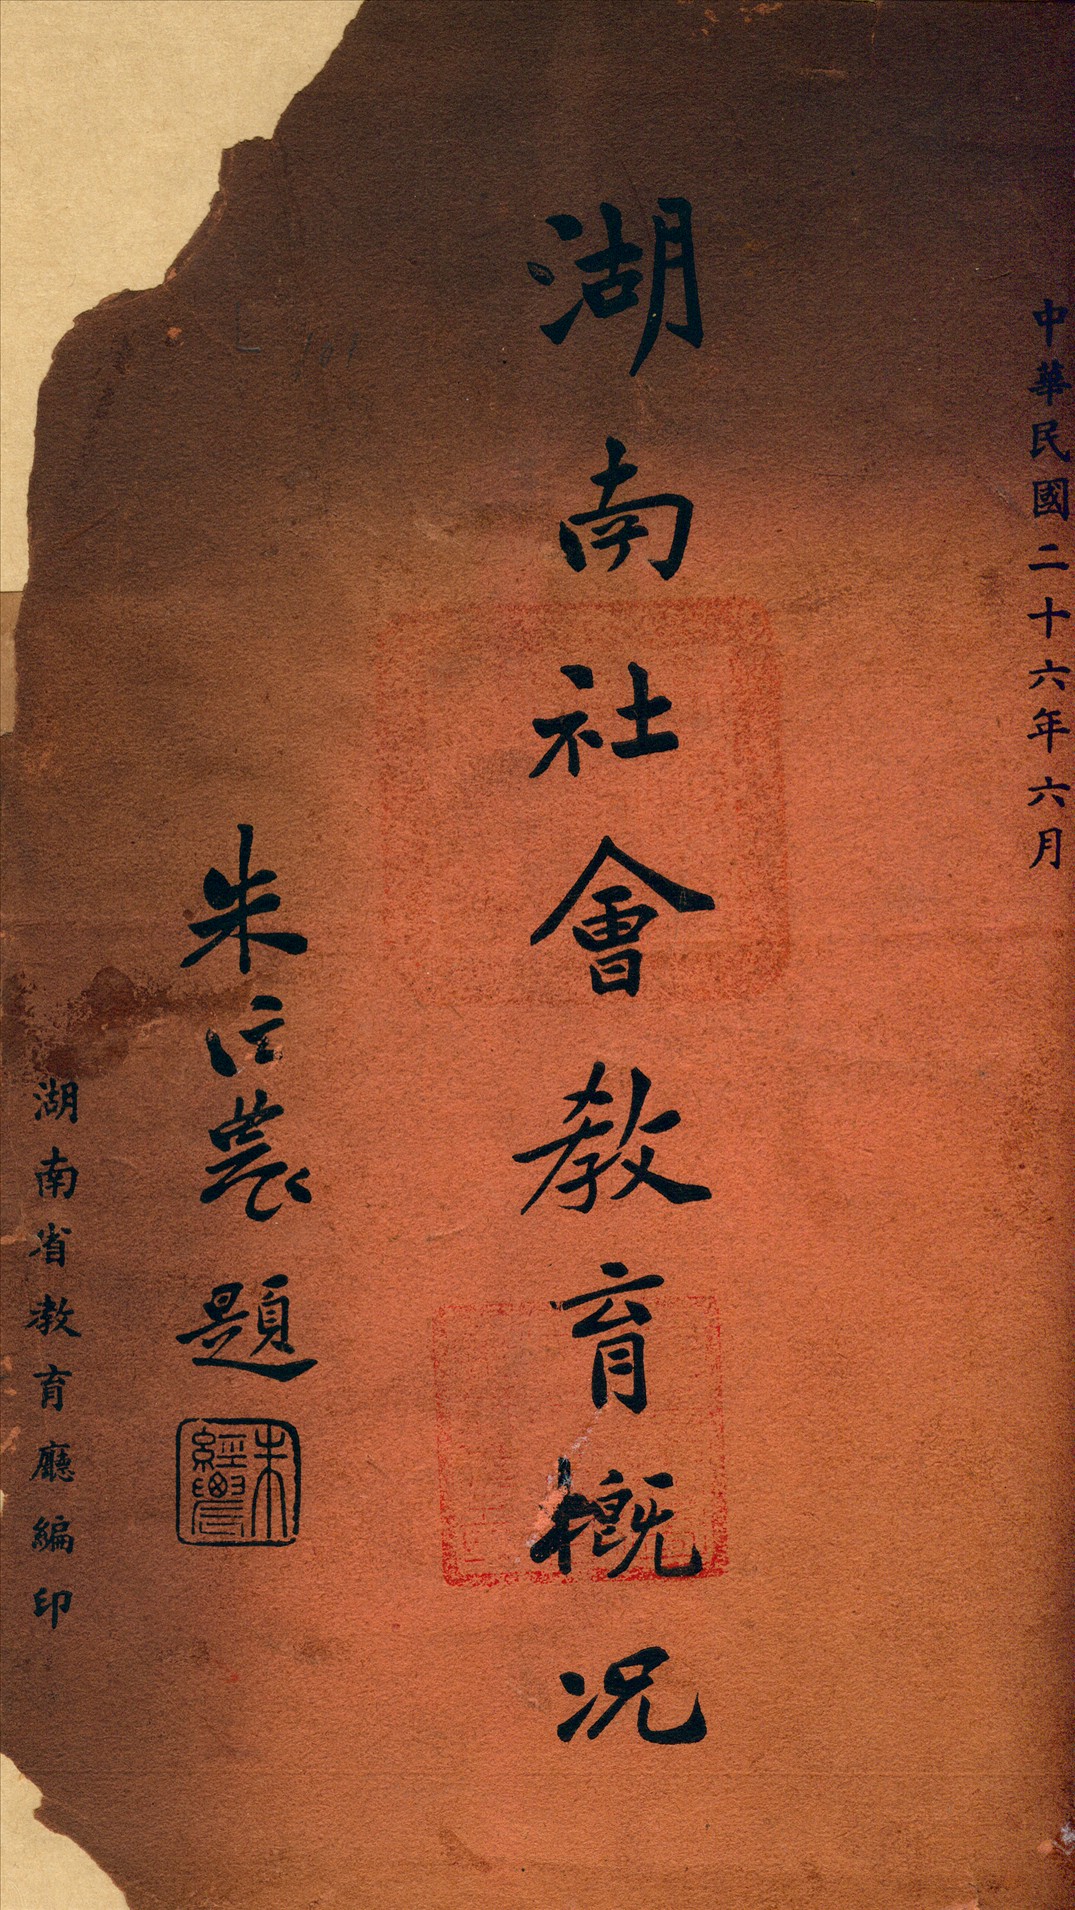 中華民國二十六年六月
湖南社會教育概況
朱經農題
朱經農
湖南省教育廳編印